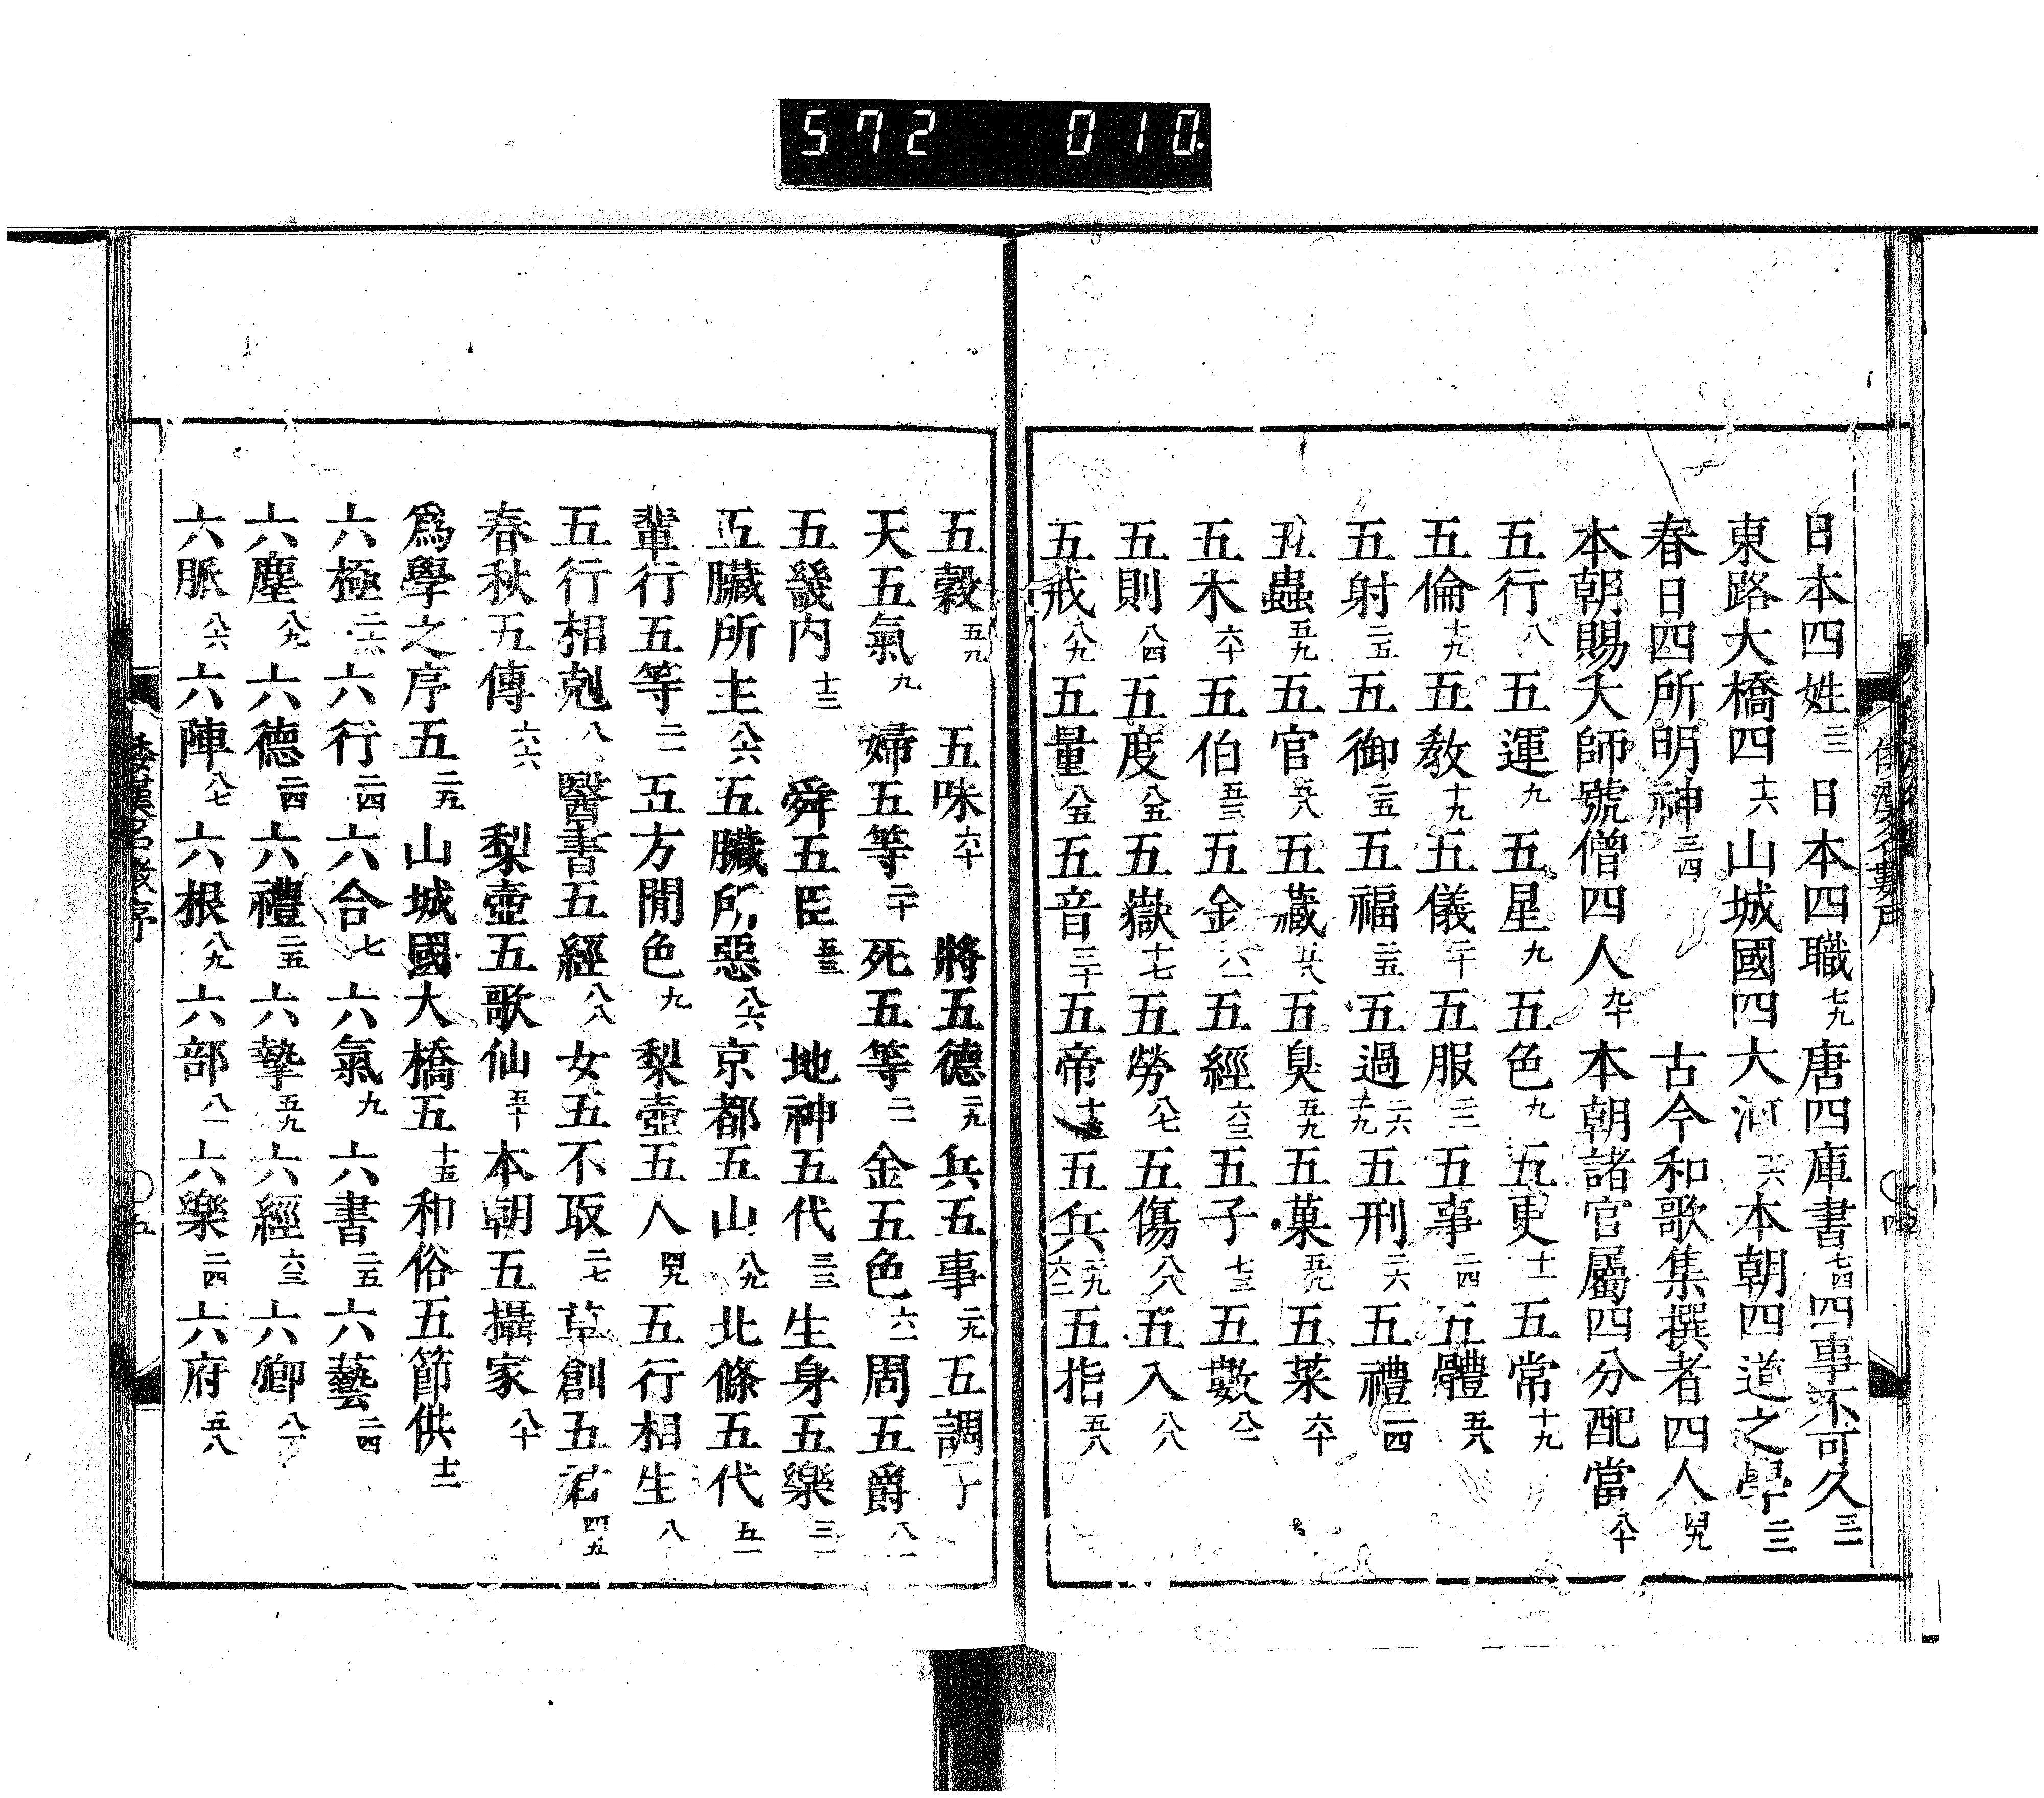 572 010
日本四姓三 日本四職七九 唐四庫書七四 四事不可久三一
東路大橋四十六 山城國四大河十六 本朝四道之學二三
春日四所明神三四 古今和歌集撰者四人四九
本朝賜大師號僧四人九十 本朝諸官屬四分配當八十
五行八 五運九 五星九 五色九 五更十一 五常十九
五倫十九 五教十九 五儀二十 五服二二 五事二四 五體五八
五射二五 五御二五 五福二五 五過二六十九 五刑二六 五禮二四
五蟲五九 五官五八 五藏五八 五臭五九 五菓五九 五菜六十
五木六十 五伯五三 五金六一 五經六三 五子七三 五數八二
五則八四 五度八五 五嶽十七 五勞八七 五傷八八 五入八八
五戒八九 五量八五 五音三十 五帝十五 五兵二九六二 五指五八
五穀五九 五味六十 將五德二九 兵五事二九 五調子
天五氣九 婦五等二十 死五等二一 金五色六一 周五爵八一
五畿内十三 舜五臣五三 地神五代三三 生身五樂三一
五臟所主八六 五臟所惡八六 京都五山八九 北條五代五一
輩行五等二一 五方間色九 梨壺五人四九 五行相生八
五行相剋八 醫書五經八八 女五不取二七 草創五君四五
春秋五傳六六 梨壺五歌仙五十 本朝五攝家八十
爲學之序五二九 山城國大橋五十五 和俗五節供十二
六極二六 六行二四 六合七 六氣九 六書二五 六藝二四
六塵八九 六德二四 六禮二五 六摯五九 六經六三 六卿八一
六脈八六 六陣八七 六根八九 六部八一 六樂二四 六府五八
倭漢名數序
五